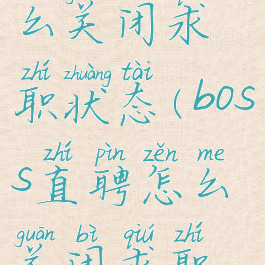 么关闭求
zhí zhuàng tài
职状态(bos
zhí pìn zěn me
s直聘怎么
guān bì qiú zhí
关闭求职